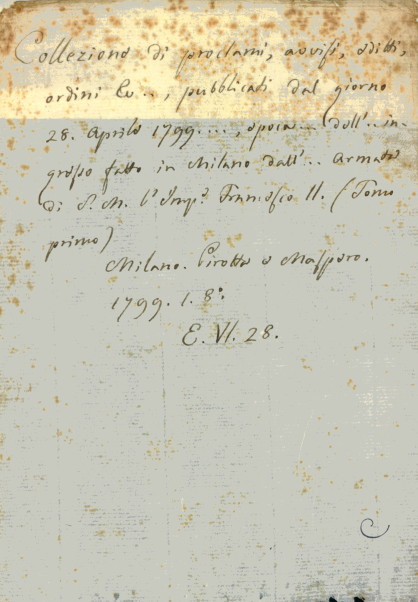 Collezione di proclami, avvisi, editti,
ordini Ec..., pubblicati dal giorno
28. Aprile 1799...., epoca... dell'..in-
gresso fatto in Milano dall'.. Armata
di S. M. l'Imp.e Francesco II. (Tomo
primo)
Milano. Pirotta e Maspero.
1799. 1. 8.°
E. VI. 28.